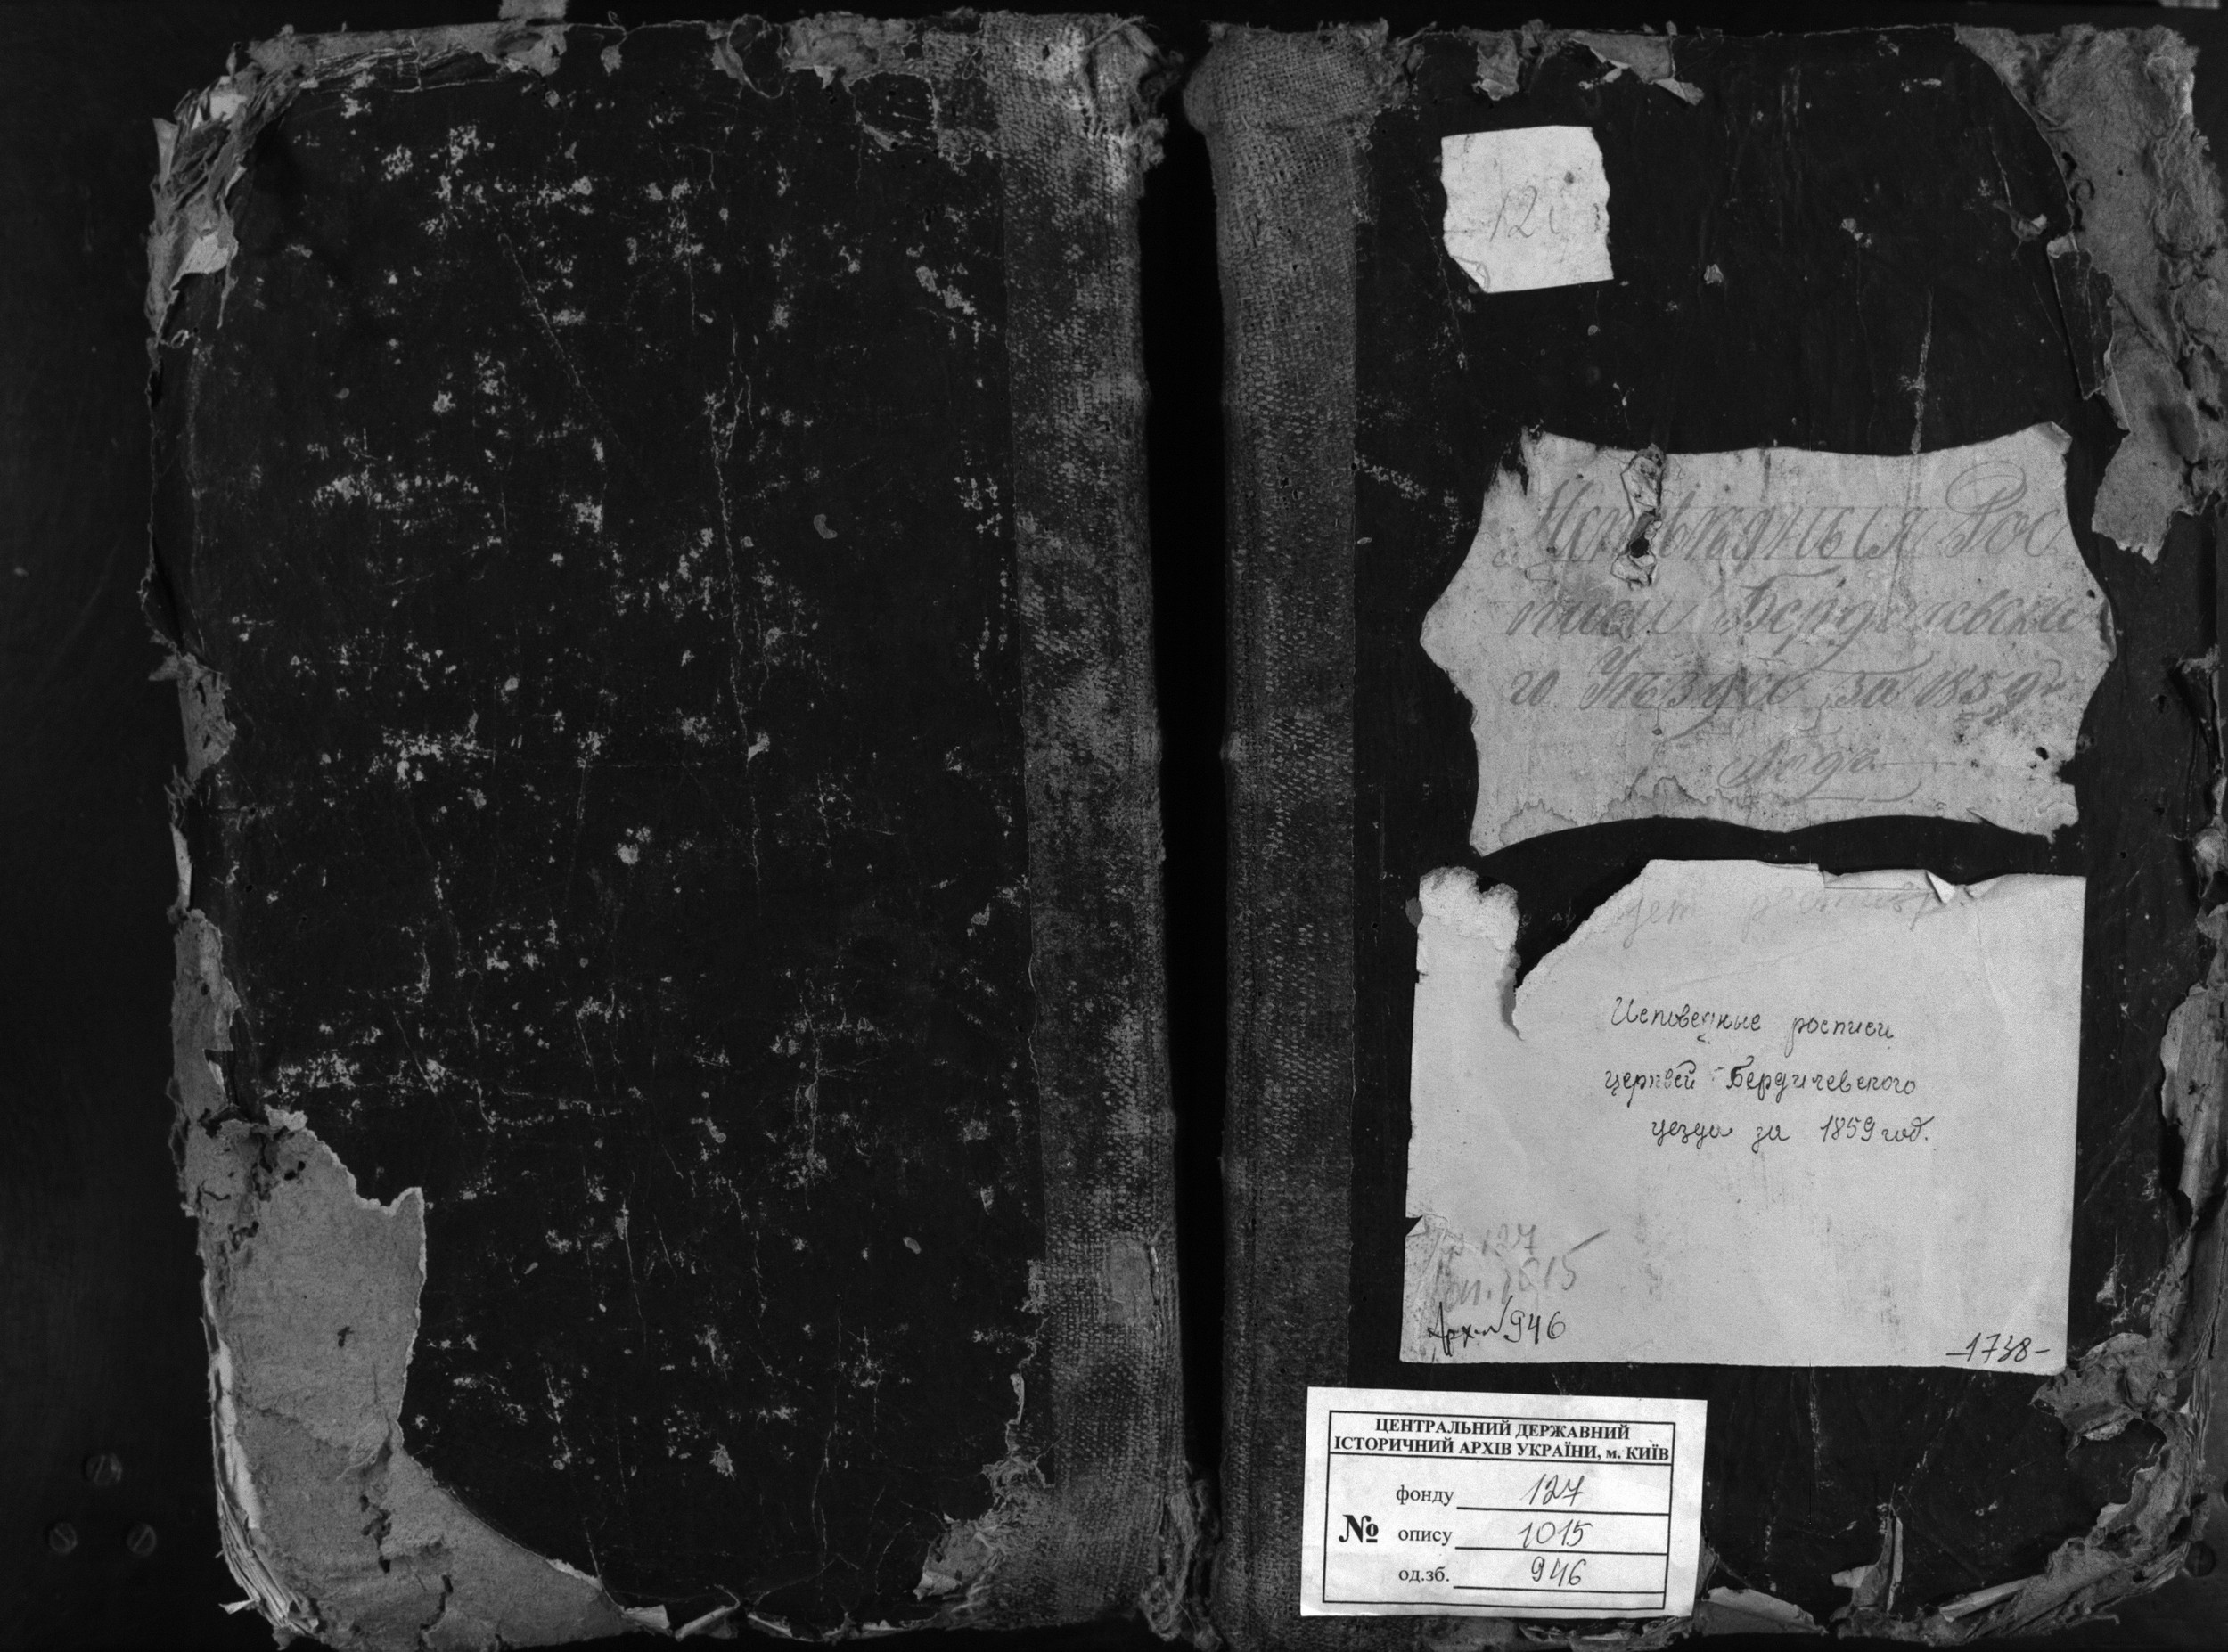 Исповѣдныя Рос
писи Бердичевска
го Уѣзда за 1859й
Годъ
Исповедные росписи
церквей Бердичевского
уезда за 1859 год.
ф 127
оп. 1015
Арх № 946
-1738-
ЦЕНТРАЛЬНИЙ ДЕРЖАВНИЙ
ІСТОРИЧНИЙ АРХІВ УКРАЇНИ, м. КИЇВ
№
фонду 127
опису 1015
од.зб. 946